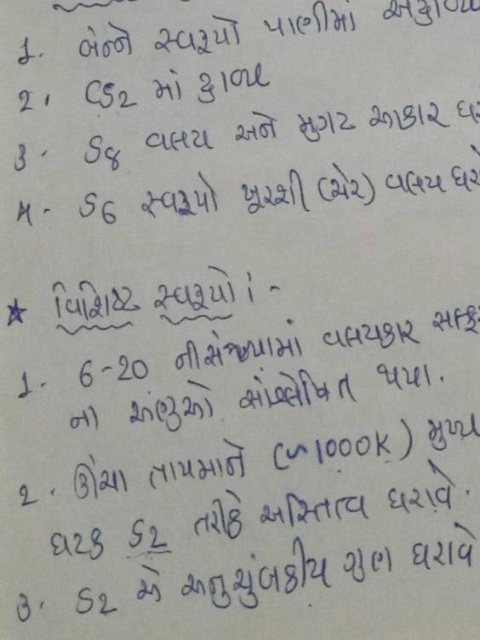 1. બંન્ને સ્વરૂપો પાણીમાં અદ્રાવ્ય
2. CS2 માં દ્રાવ્ય
3. S8 વલય અને મુગટ આકાર ધરા
4. S6 સ્વરૂપો ખુરશી (ચેર) વલય ધરા
★ વિશિષ્ટ સ્વરૂપો :-
1. 6-20 ની સંખ્યામાં વલયાકાર સલ્ફર
ના અણુઓ સંશ્લેષિત થયા.
2. ઊંચા તાપમાને (~1000K) મુખ્ય
ઘટક S2 તરીકે અસ્તિત્વ ધરાવે.
3. S2 એ અનુચુંબકીય ગુણ ધરાવે